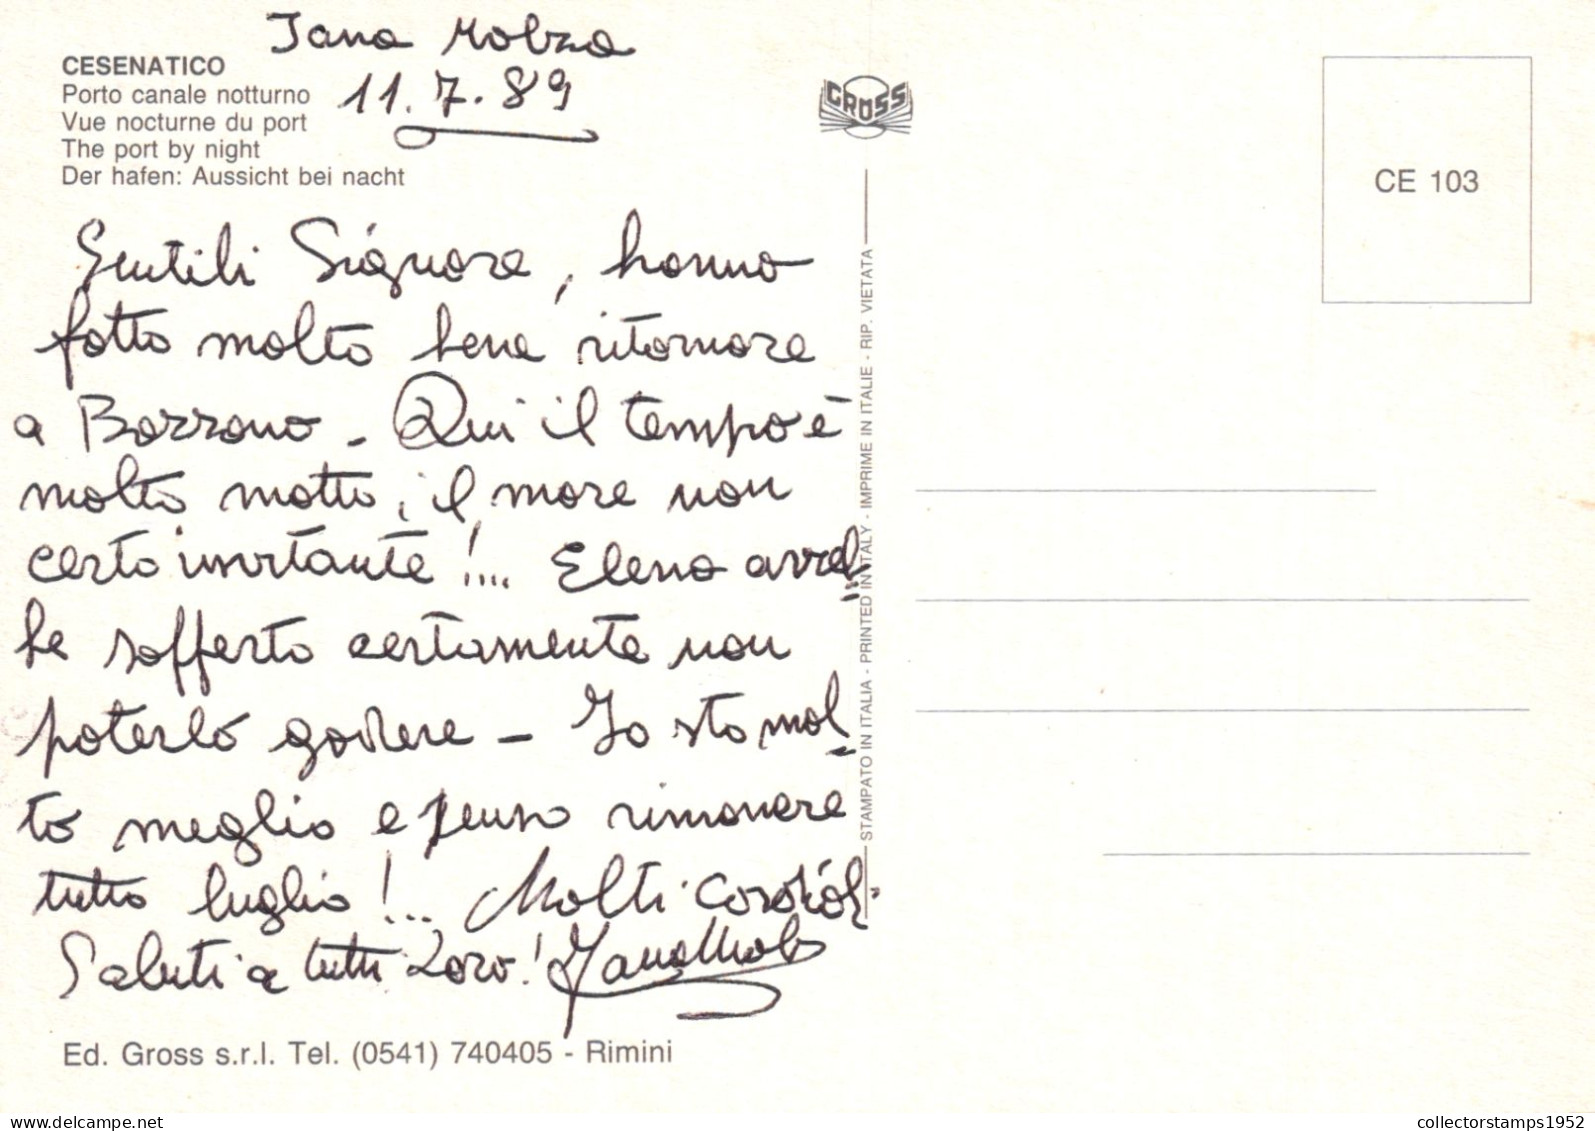 Jana Molza
CESENATICO
Porto canale notturno
11.7.89
Vue nocturne du port
The port by night
Der hafen: Aussicht bei nacht
GROSS
CE 103
Gentili Signore, hanno
fatto molto bene ritornare
a Bazzano - Qui il tempo è
molto matto, il mare non
certo invitante!... Elena avreb=
be sofferto certamente non
poterlo godere - Io sto mol=
to meglio e penso rimanere
tutto luglio!... Molti cordiali
Saluti a tutti Loro! Jana Molza
STAMPATO IN ITALIA - PRINTED IN ITALY - IMPRIME IN ITALIE - RIP. VIETATA
Ed. Gross s.r.l. Tel. (0541) 740405 - Rimini
collectorstamps1952